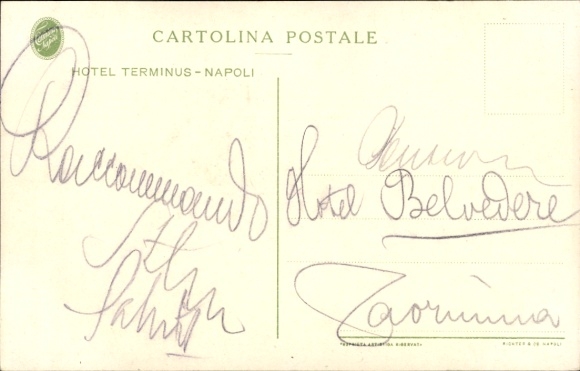 CARTOLINA POSTALE
HOTEL TERMINUS - NAPOLI
Raccomando
Hotel Belvedere
Taormina
PROPRIETA ARTISTICA RISERVATA
RICHTER & CO. NAPOLI